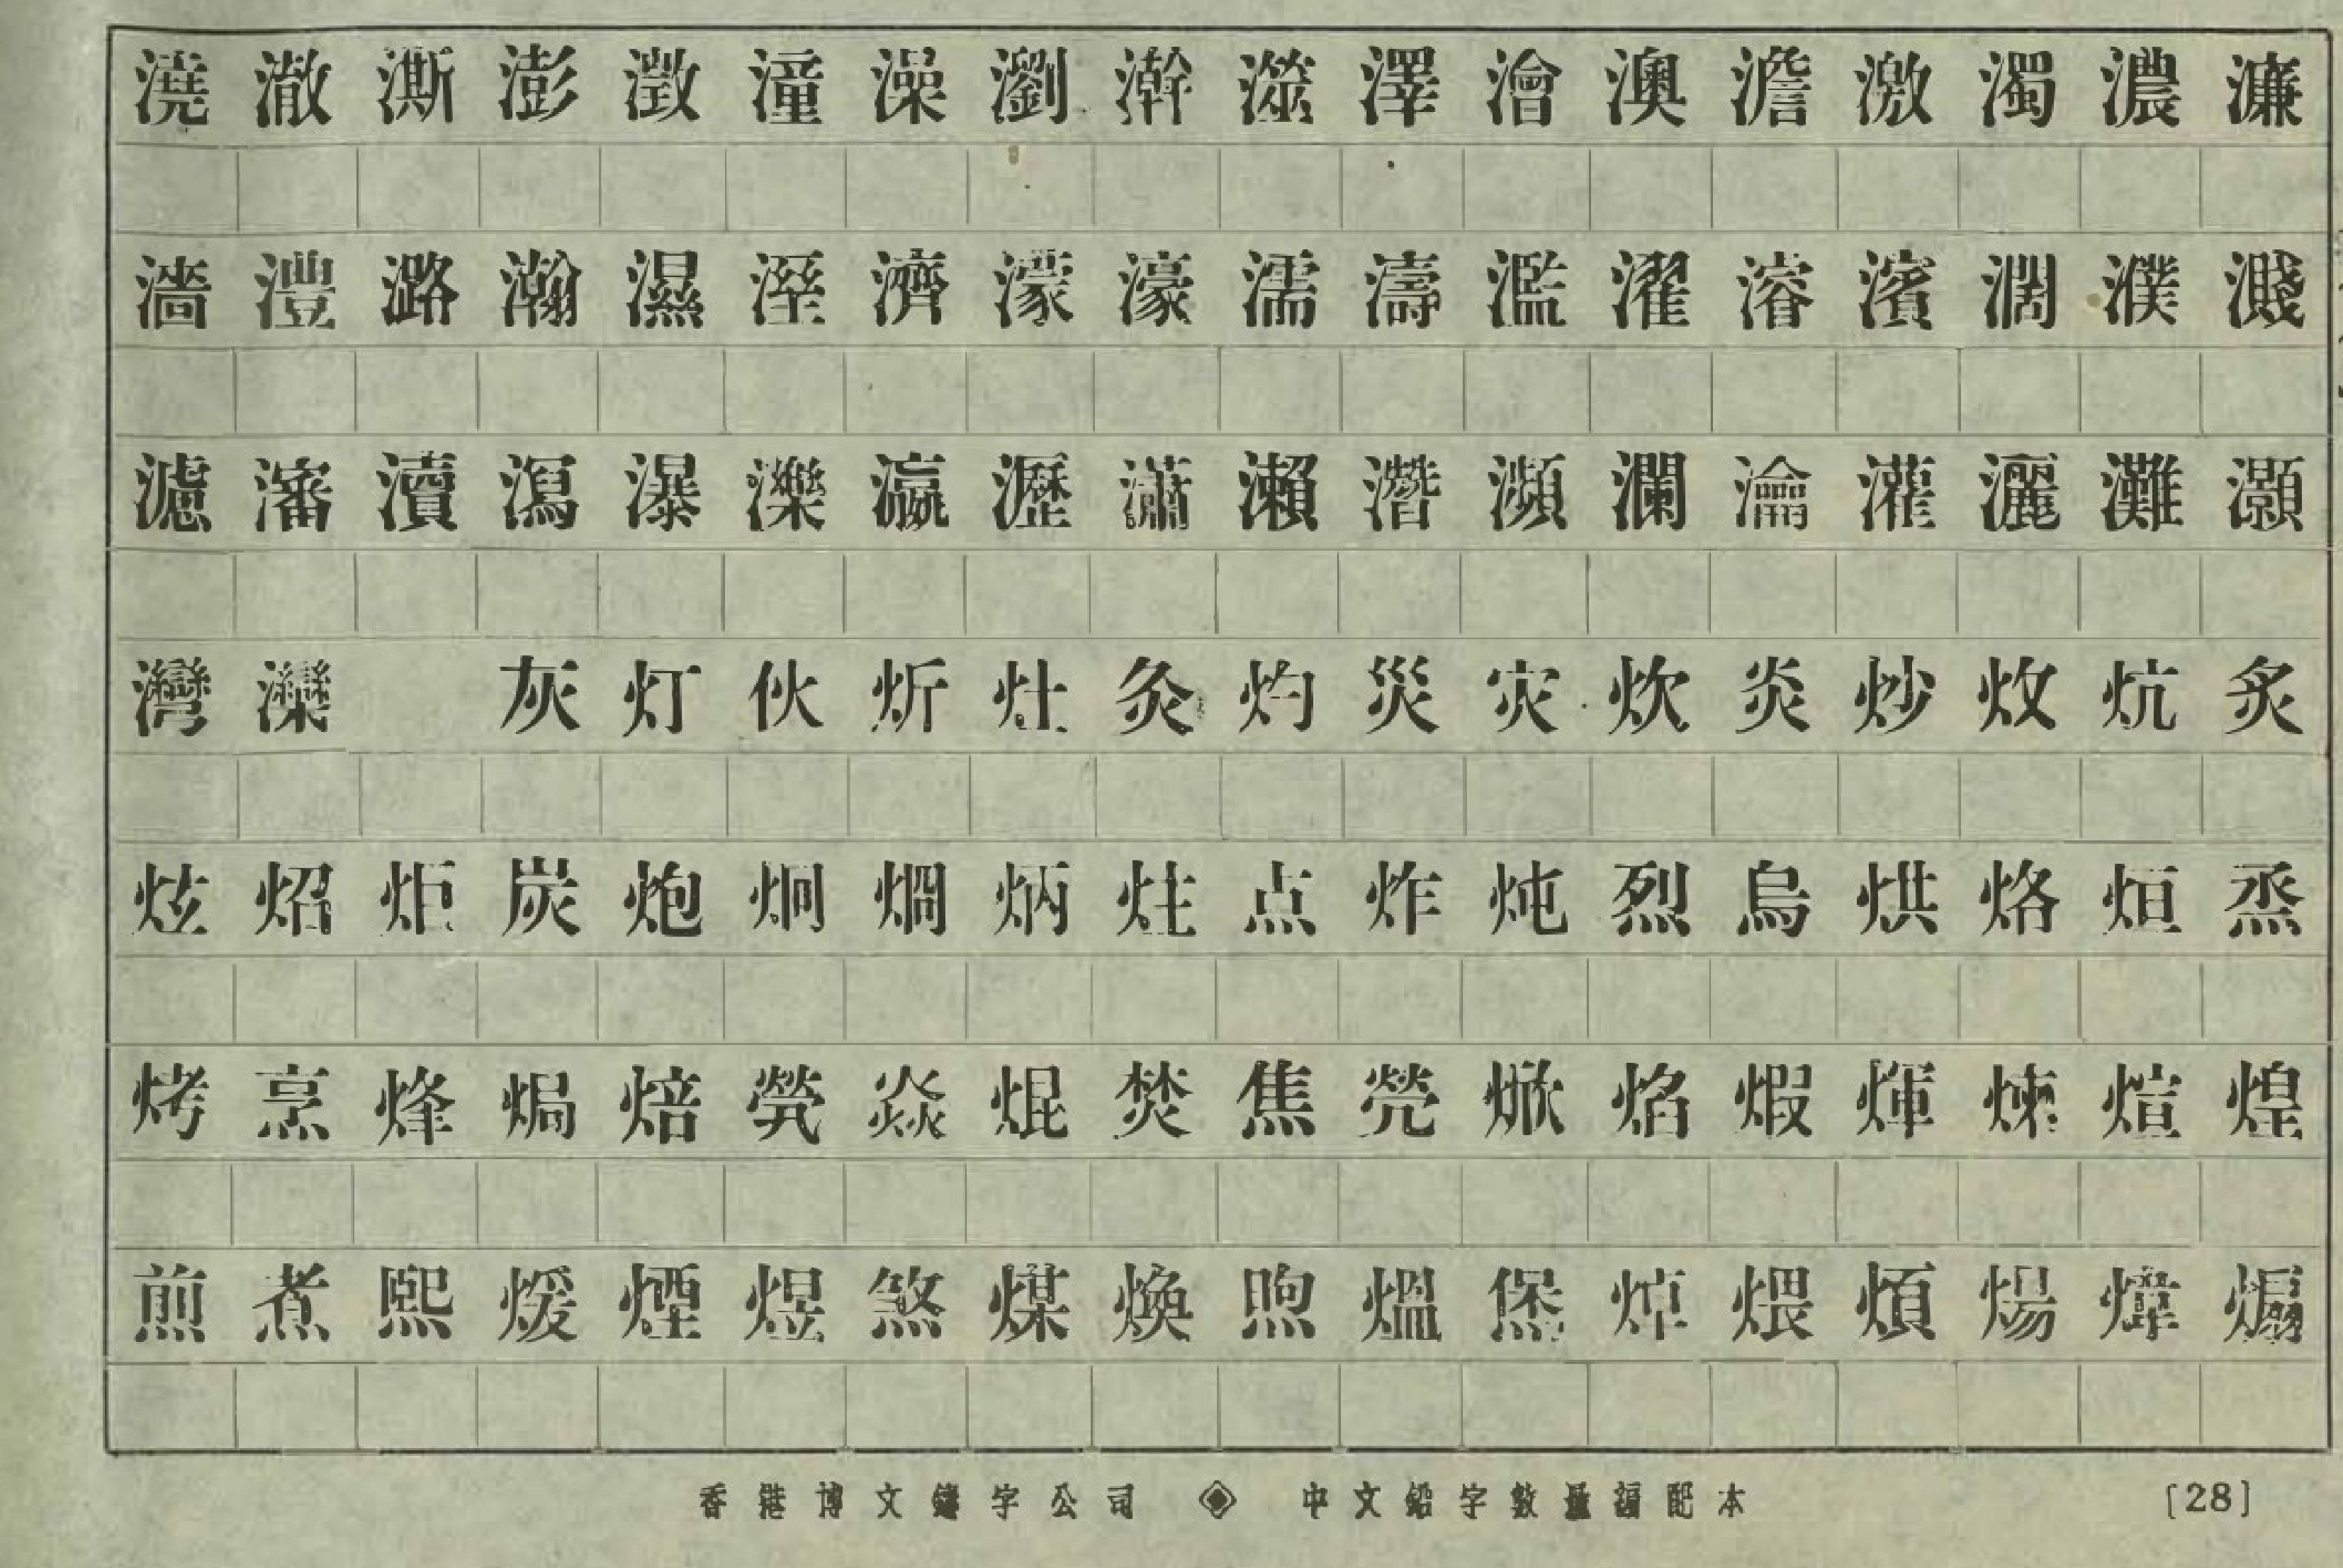 澆澈澌澎澂潼澡瀏澣澨澤澮澳澹激濁濃濂
濇澧潞瀚濕溼濟濛濠濡濤濫濯濬濱濶濮濺
濾瀋瀆瀉瀑濼瀛瀝瀟瀨濳瀕瀾瀹灌灑灘灝
灣灤 灰灯伙炘灶灸灼災灾炊炎炒炆炕炙
炫炤炬炭炮炯烱炳炷点炸炖烈烏烘烙烜烝
烤烹烽焗焙焭焱焜焚焦焭焮焰煆煇煉煊煌
煎煮熙煖煙煜煞煤煥煦熅煲焯煨煩煬煒煽
香港博文鑄字公司 ◈ 中文鉛字數量編配本 [28]